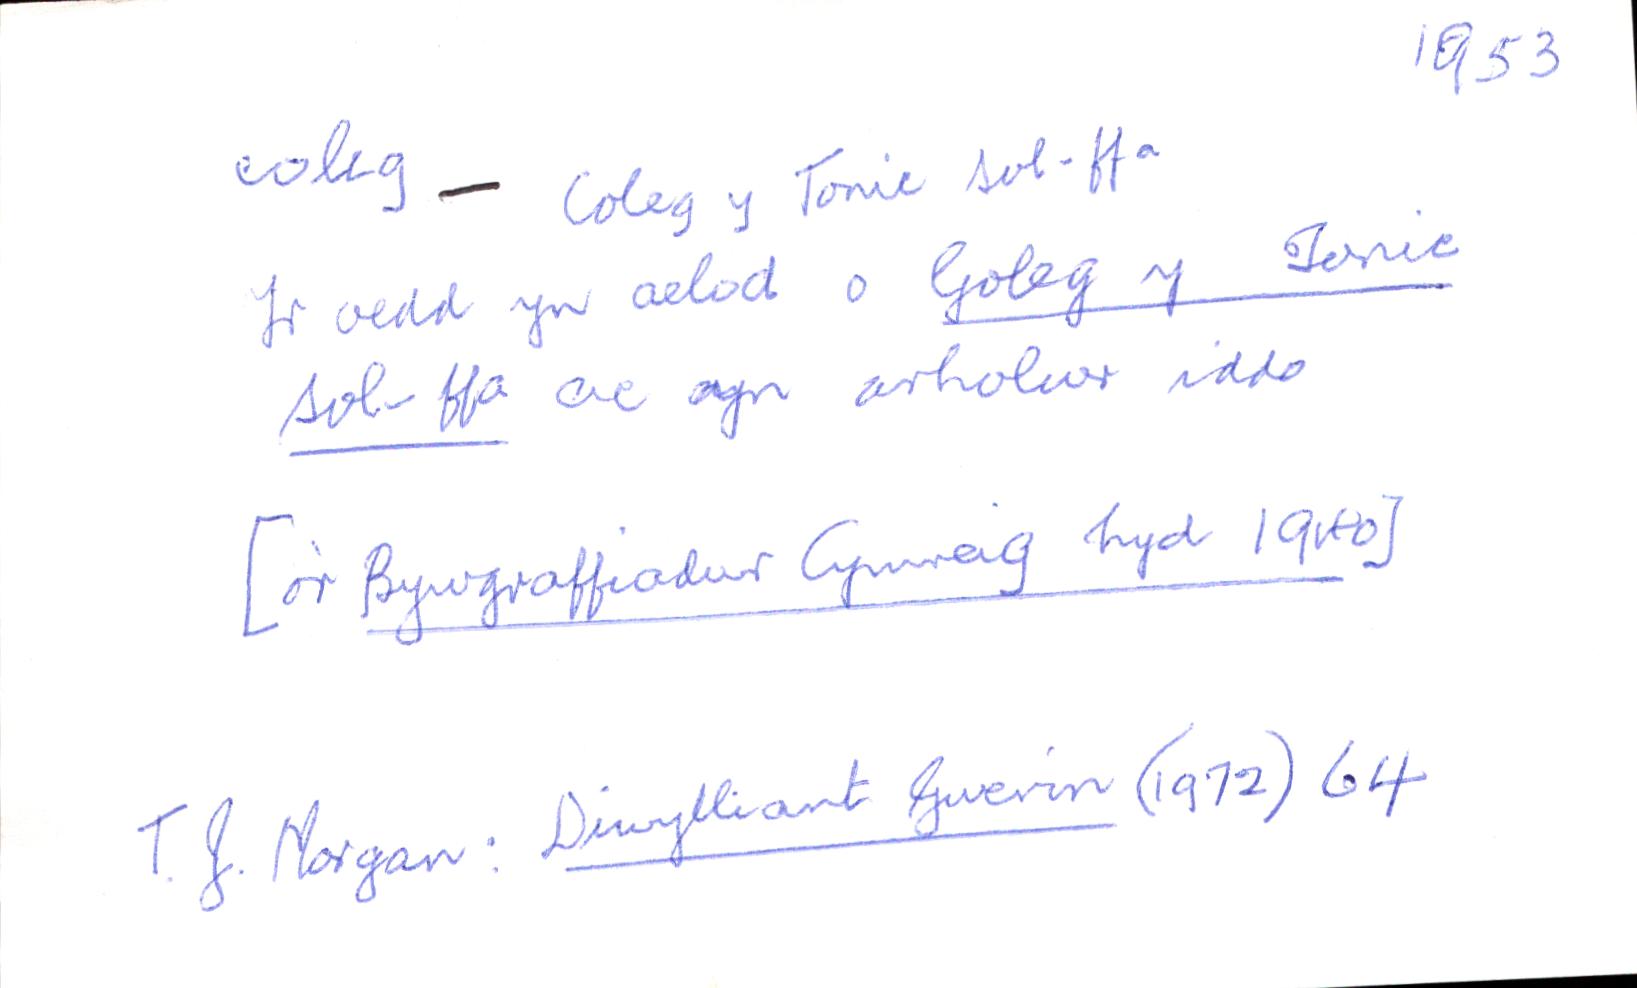 1953
coleg — Coleg y Tonic Sol-ffa
Yr oedd yn aelod o Goleg y Tonic
Sol-ffa ac yn arholwr iddo
[o'r Bywgraffiadur Cymreig hyd 1940]
T. J. Morgan: Diwylliant Gwerin (1972) 64